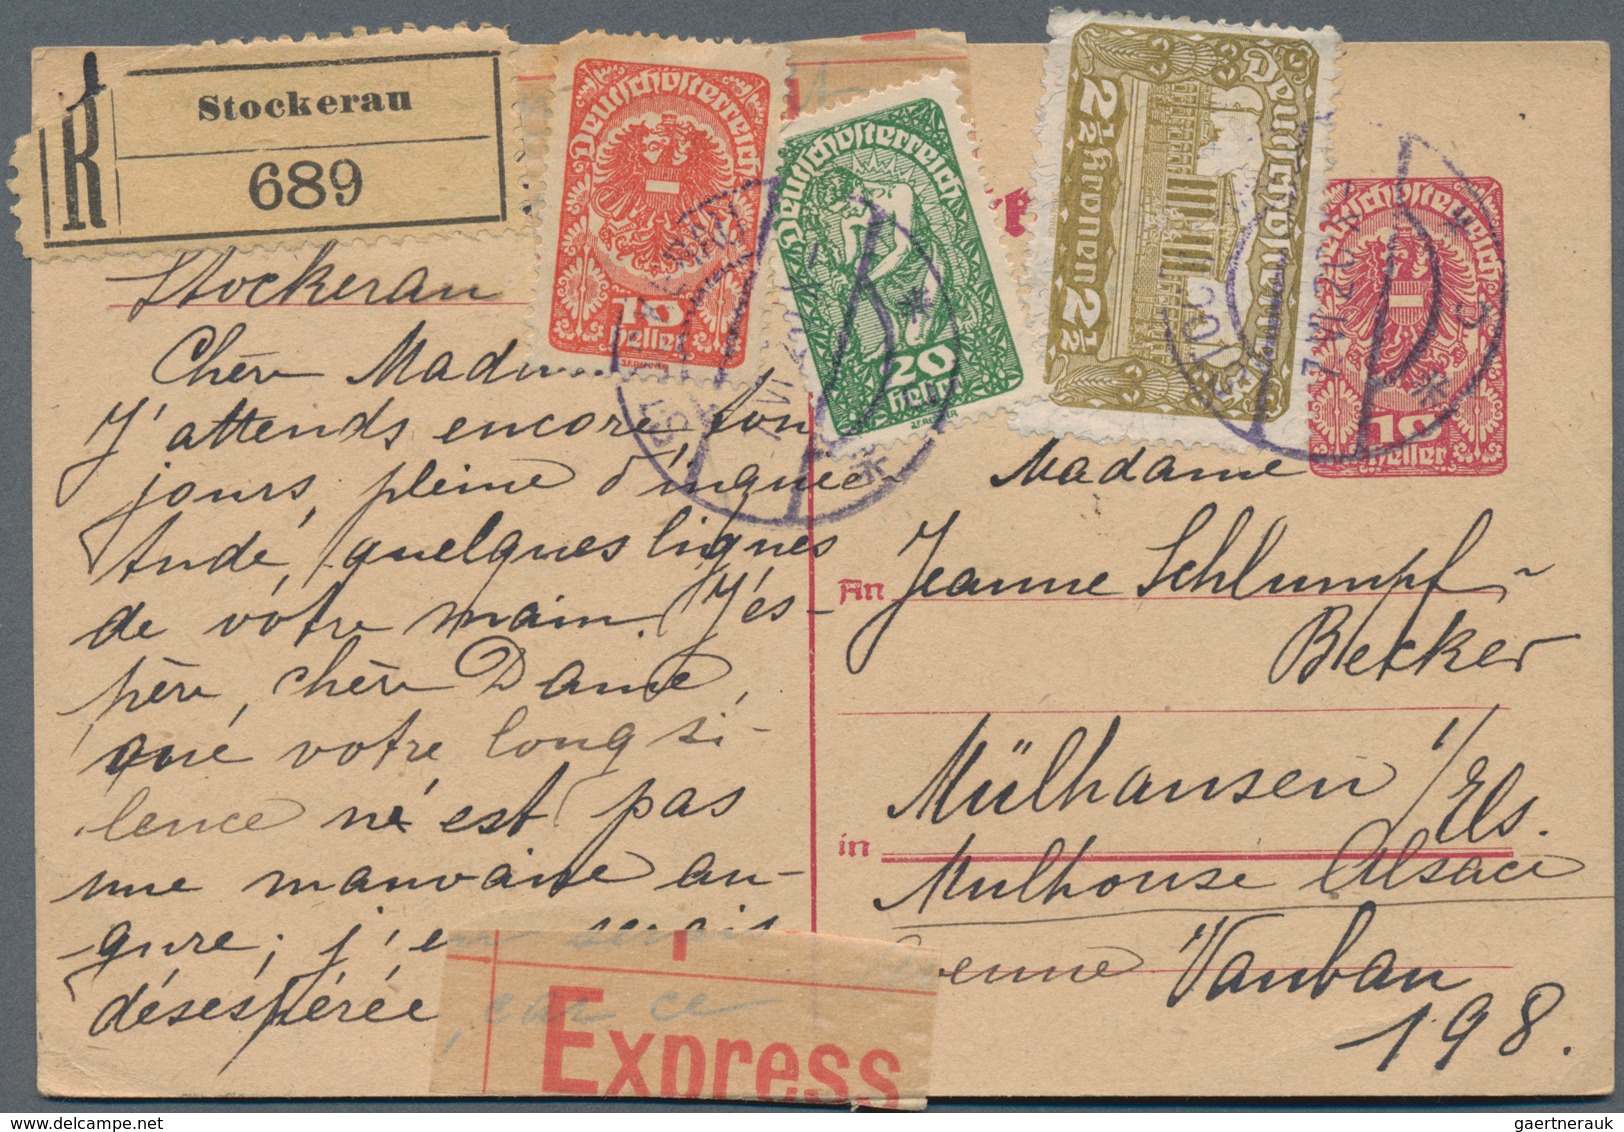 R
Stockerau
689
Deutschösterreich
10
Heller
Deutschösterreich
20
Heller
Deutschösterreich
2½ Kronen 2½
Deutschösterreich
10
Heller
Stockerau
Chère
J'attends encore, tou
jours, pleine d'inquié-
tude, quelques lignes
de vôtre main. J'es-
père, chère Dame,
que votre long si-
lence n'est pas
une mauvaise au-
gure; j'en serais
désespérée, car ce
Express
Madame
An Jeanne Schlumpf-
Becker
Mülhausen i/Els.
in
Mulhouse Alsace
Avenue Vauban
198.
gaertnerauk@delcampe.net